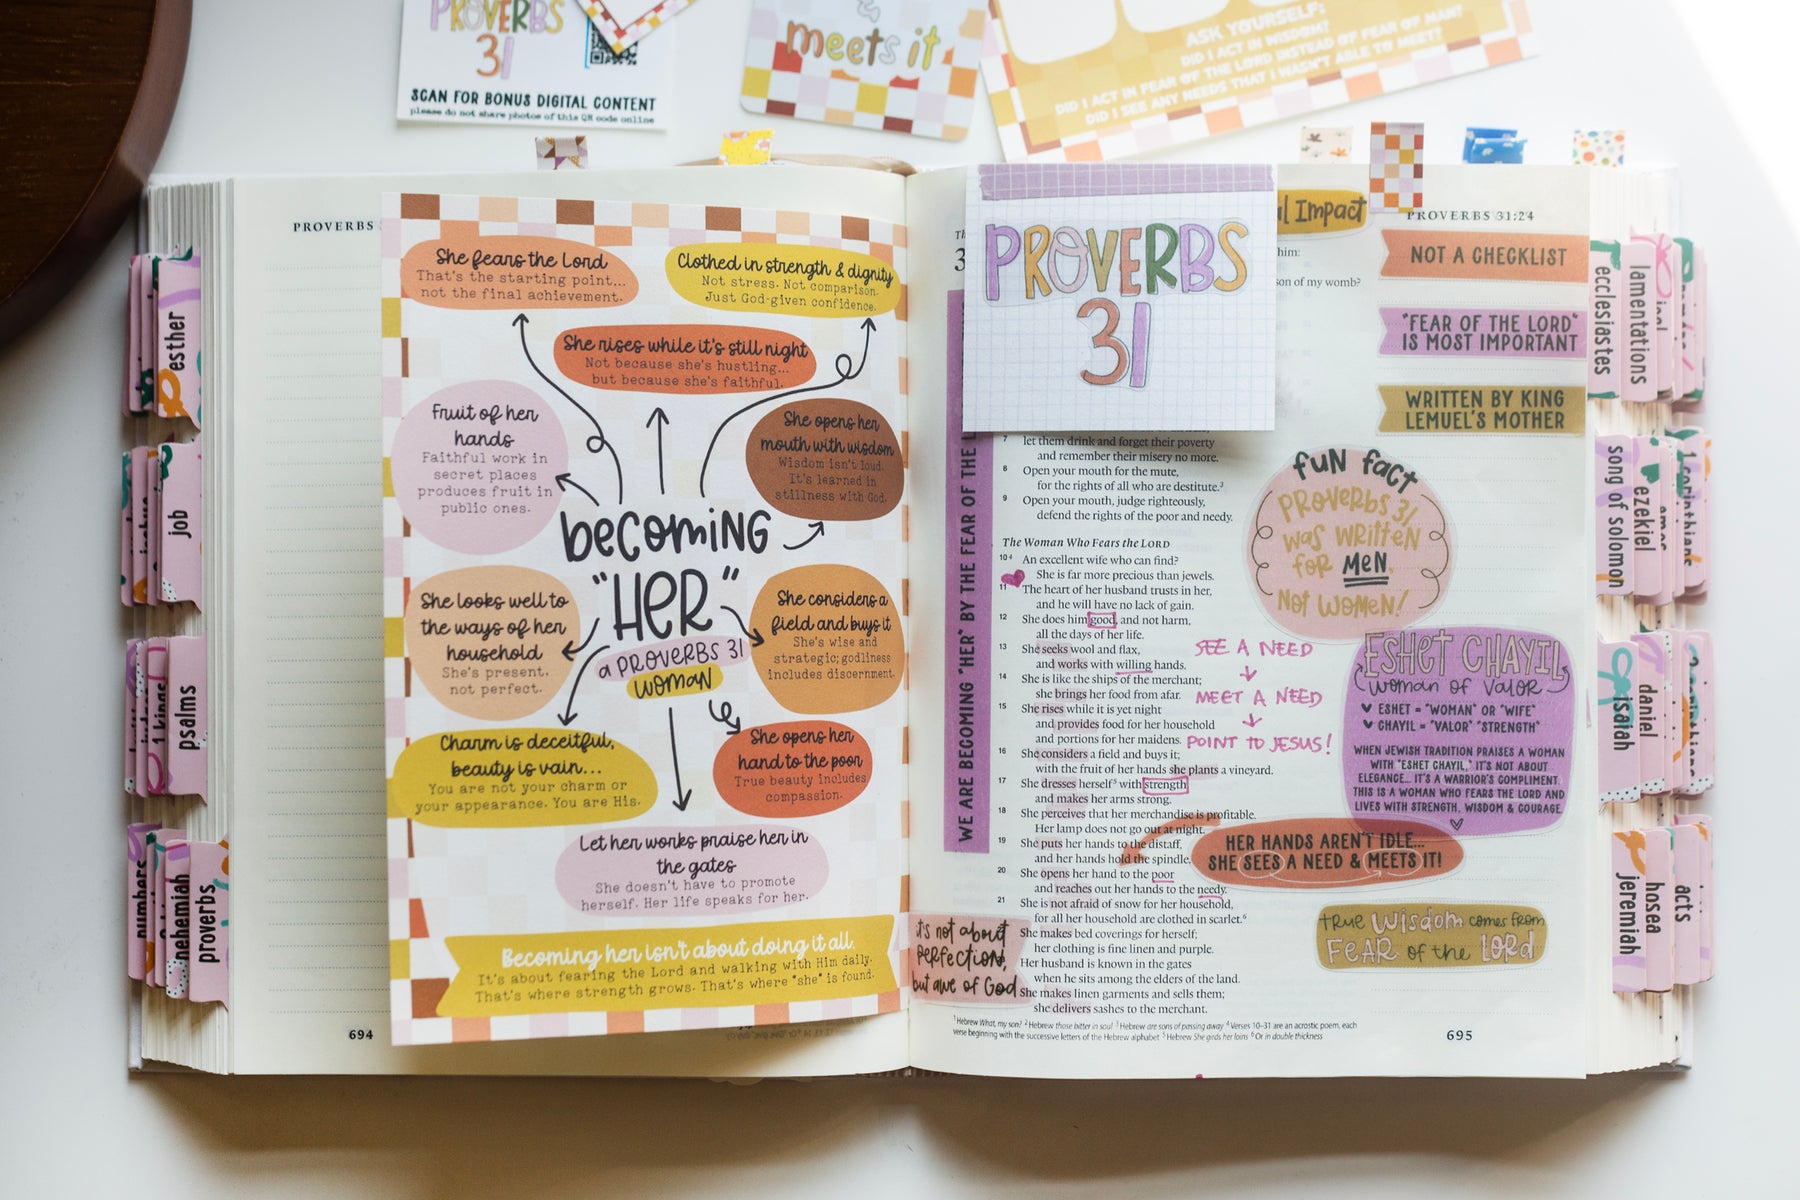 PROVERBS
31
SCAN FOR BONUS DIGITAL CONTENT
please do not share photos of this QR code online
&
meets it
ASK YOURSELF:
DID I ACT IN WISDOM?
DID I ACT IN FEAR OF THE LORD INSTEAD OF FEAR OF MAN?
DID I SEE ANY NEEDS THAT I WASN'T ABLE TO MEET?
PROVERBS
She fears the Lord
That's the starting point...
not the final achievement.
Clothed in strength & dignity
Not stress. Not comparison.
Just God-given confidence.
She rises while it's still night
Not because she's hustling...
but because she's faithful.
Fruit of her
hands
Faithful work in
secret places
produces fruit in
public ones.
She opens her
mouth with wisdom
Wisdom isn't loud.
It's learned in
stillness with God.
becoming
"HER"
a PROVERBS 31
WOMAN
She looks well to
the ways of her
household
She's present,
not perfect.
She considers a
field and buys it
She's wise and
strategic; godliness
includes discernment.
Charm is deceitful,
beauty is vain...
You are not your charm or
your appearance. You are His.
She opens her
hand to the poor
True beauty includes
compassion.
Let her works praise her in
the gates
She doesn't have to promote
herself. Her life speaks for her.
Becoming her isn't about doing it all.
It's about fearing the Lord and walking with Him daily.
That's where strength grows. That's where "she" is found.
694
esther
job
psalms
1 kings
numbers
nehemiah
proverbs
PROVERBS
31
Impact
PROVERBS 31:24
him:
son of my womb?
WE ARE BECOMING "HER" BY THE FEAR OF THE L
7 let them drink and forget their poverty
and remember their misery no more.
8 Open your mouth for the mute,
for the rights of all who are destitute.3
9 Open your mouth, judge righteously,
defend the rights of the poor and needy.
The Woman Who Fears the LORD
10 4 An excellent wife who can find?
She is far more precious than jewels.
11 The heart of her husband trusts in her,
and he will have no lack of gain.
12 She does him good, and not harm,
all the days of her life.
13 She seeks wool and flax,
and works with willing hands.
14 She is like the ships of the merchant;
she brings her food from afar.
15 She rises while it is yet night
and provides food for her household
and portions for her maidens.
16 She considers a field and buys it;
with the fruit of her hands she plants a vineyard.
17 She dresses herself5 with strength
and makes her arms strong.
18 She perceives that her merchandise is profitable.
Her lamp does not go out at night.
19 She puts her hands to the distaff,
and her hands hold the spindle.
20 She opens her hand to the poor
and reaches out her hands to the needy.
21 She is not afraid of snow for her household,
for all her household are clothed in scarlet.6
She makes bed coverings for herself;
her clothing is fine linen and purple.
Her husband is known in the gates
when he sits among the elders of the land.
She makes linen garments and sells them;
she delivers sashes to the merchant.
1 Hebrew What, my son? 2 Hebrew those bitter in soul 3 Hebrew are sons of passing away 4 Verses 10–31 are an acrostic poem, each
verse beginning with the successive letters of the Hebrew alphabet 5 Hebrew She girds her loins 6 Or in double thickness
695
it's not about
perfection,
but awe of God
SEE A NEED
MEET A NEED
POINT TO JESUS!
NOT A CHECKLIST
"FEAR OF THE LORD"
IS MOST IMPORTANT
WRITTEN BY KING
LEMUEL'S MOTHER
fun fact
PROVERBS 31
was written
for MEN,
NOT WOMEN!
ESHET CHAYIL
woman of valor
ESHET = "WOMAN" OR "WIFE"
CHAYIL = "VALOR" "STRENGTH"
WHEN JEWISH TRADITION PRAISES A WOMAN
WITH "ESHET CHAYIL," IT'S NOT ABOUT
ELEGANCE... IT'S A WARRIOR'S COMPLIMENT.
THIS IS A WOMAN WHO FEARS THE LORD AND
LIVES WITH STRENGTH, WISDOM & COURAGE.
HER HANDS AREN'T IDLE...
SHE SEES A NEED & MEETS IT!
TRUE WISDOM comes from
FEAR of the LORD
ecclesiastes
lamentations
song of solomon
ezekiel
amos
1 corinthians
isaiah
daniel
jeremiah
hosea
acts